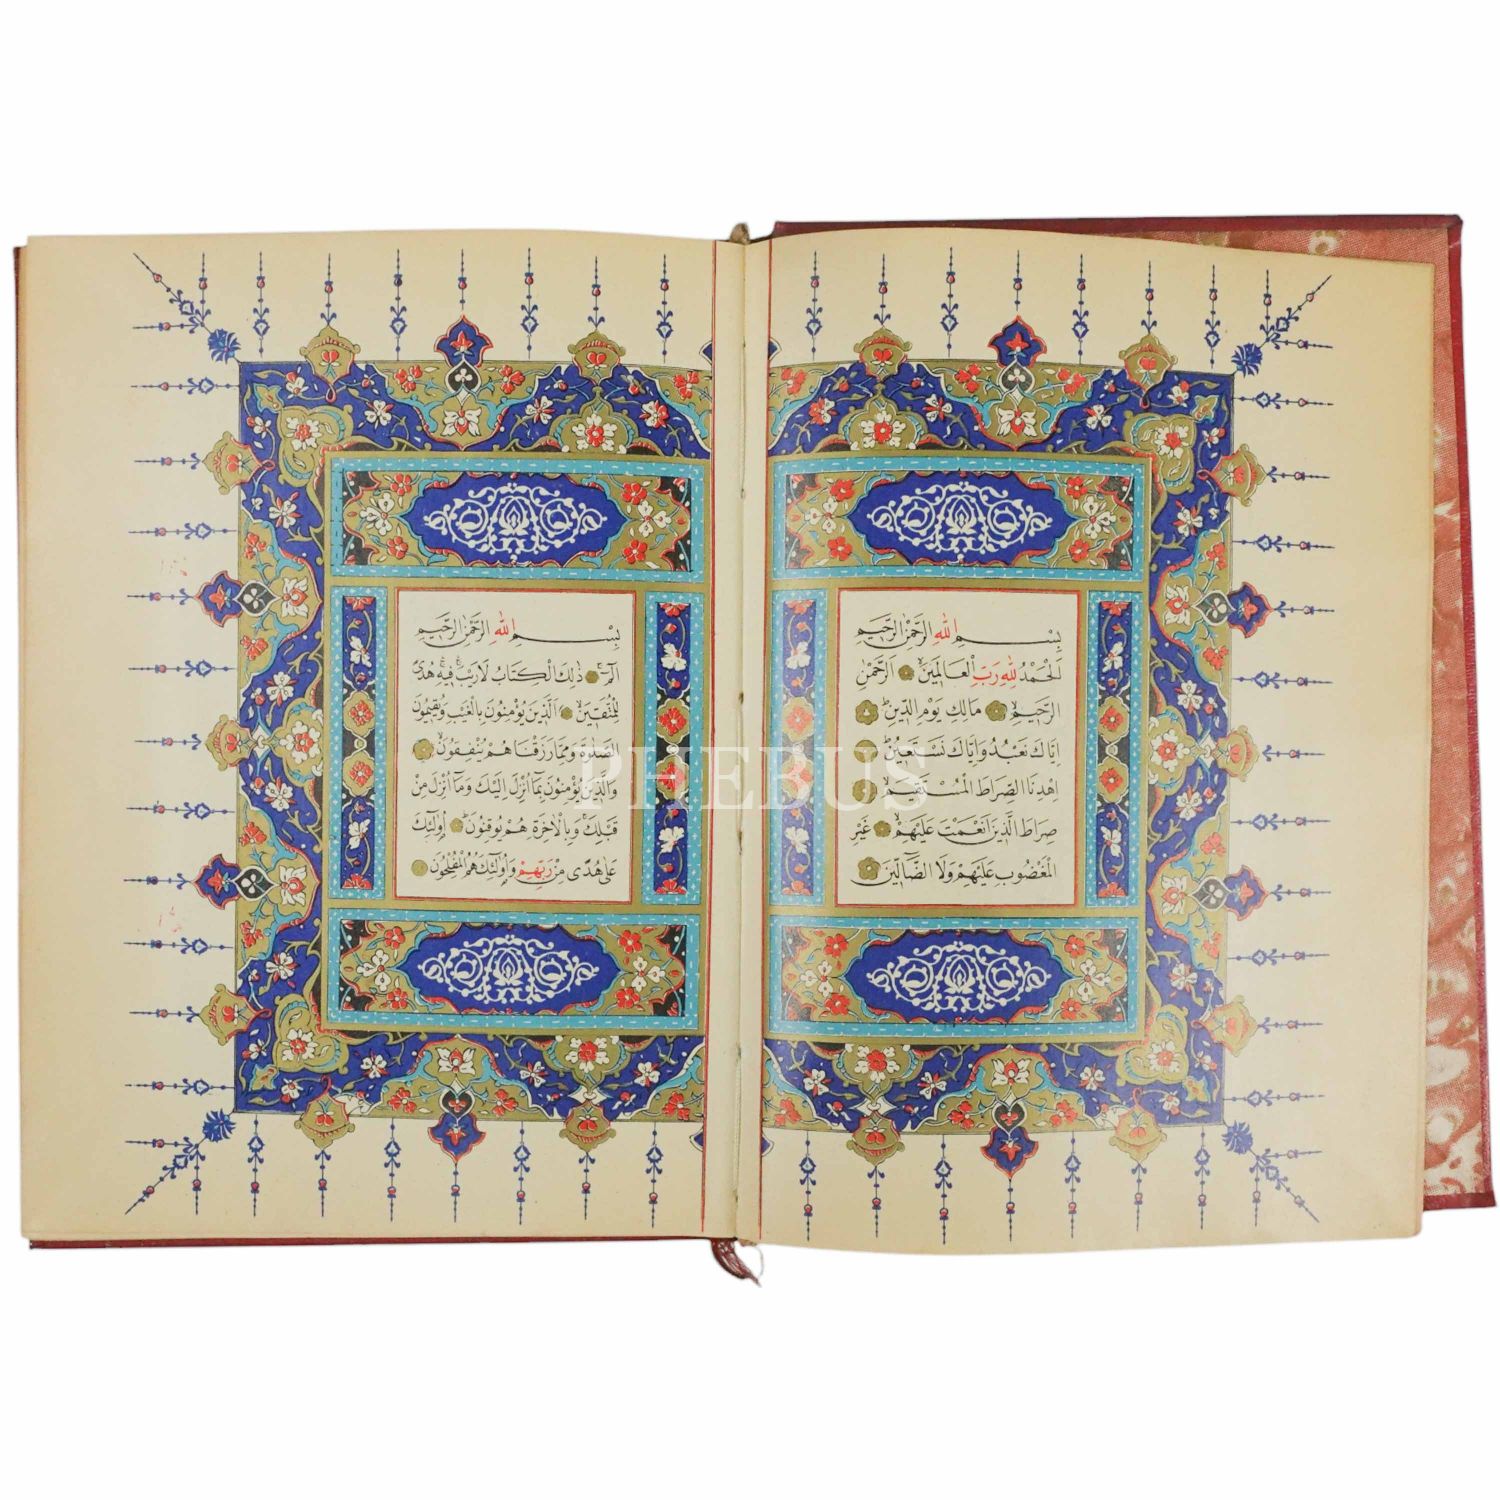 بِسْمِ اللهِ الرَّحْمٰنِ الرَّحِيمِ
اَلْحَمْدُ لِلّٰهِ رَبِّ الْعَالَمِينَۙ اَلرَّحْمٰنِ
الرَّحِيمِۙ مَالِكِ يَوْمِ الدِّينِۜ
اِيَّاكَ نَعْبُدُ وَاِيَّاكَ نَسْتَعِينُۜ
اِهْدِنَا الصِّرَاطَ الْمُسْتَقِيمَۙ
صِرَاطَ الَّذِينَ اَنْعَمْتَ عَلَيْهِمْۙ غَيْرِ
الْمَغْضُوبِ عَلَيْهِمْ وَلَا الضَّٓالِّينَ
بِسْمِ اللهِ الرَّحْمٰنِ الرَّحِيمِ
الٓمٓۚ ذٰلِكَ الْكِتَابُ لَا رَيْبَۚۛ فِيهِۚۛ هُدًى
لِلْمُتَّقِينَۙ اَلَّذِينَ يُؤْمِنُونَ بِالْغَيْبِ وَيُقِيمُونَ
الصَّلٰوةَ وَمِمَّا رَزَقْنَاهُمْ يُنْفِقُونَۙ
وَالَّذِينَ يُؤْمِنُونَ بِمَٓا اُنْزِلَ اِلَيْكَ وَمَٓا اُنْزِلَ مِنْ
قَبْلِكَۚ وَبِالْاٰخِرَةِ هُمْ يُوقِنُونَۜ اُولٰٓئِكَ
عَلٰى هُدًى مِنْ رَبِّهِمْ وَاُولٰٓئِكَ هُمُ الْمُفْلِحُونَ
PHEBUS